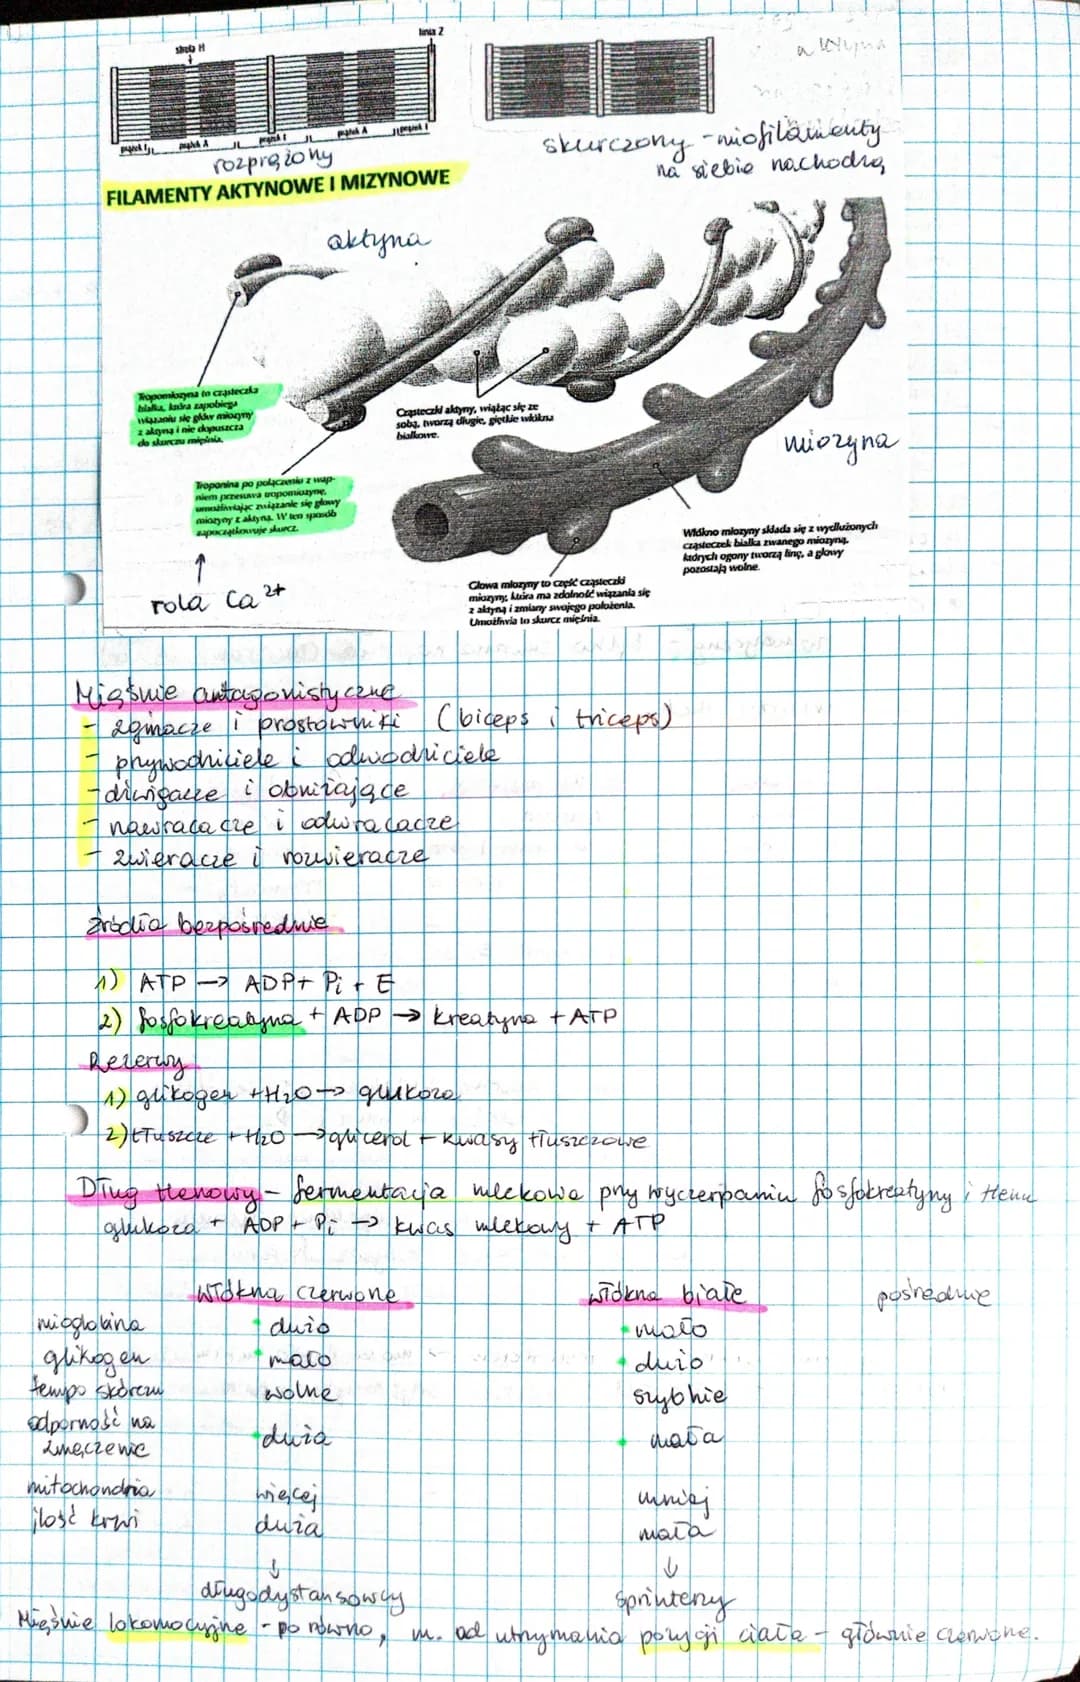 strefa H
linia Z
prążek I
prążek A
prążek I
prążek A
prążek I
rozprężony
skurczony - miofilamenty
na siebie nachodzą
FILAMENTY AKTYNOWE I MIZYNOWE
aktyna
Tropomiozyna to cząsteczka
białka, która zapobiega
wiązaniu się głów miozyny
z aktyną i nie dopuszcza
do skurczu mięśnia.
Cząsteczki aktyny, wiążąc się ze
sobą, tworzą długie, giętkie włókna
białkowe.
miozyna
Troponina po połączeniu z wap-
niem przesuwa tropomiozynę,
umożliwiając związanie się głowy
miozyny z aktyną. W ten sposób
zapoczątkowuje skurcz.
Włókno miozyny składa się z wydłużonych
cząsteczek białka zwanego miozyną,
których ogony tworzą linę, a głowy
pozostają wolne.
Głowa miozyny to część cząsteczki
miozyny, która ma zdolność wiązania się
z aktyną i zmiany swojego położenia.
Umożliwia to skurcz mięśnia.
↑
rola Ca²⁺
Mięśnie antagonistyczne
- zginacze i prostowniki (biceps i triceps)
- przywodziciele i odwodziciele
- dźwigacze i obniżające
- nawracacze i odwracacze
- zwieracze i rozwieracze
źródła bezpośrednie
1) ATP → ADP + Pi + E
2) fosfokreatyna + ADP → kreatyna + ATP
Rezerwy
1) glikogen + H₂O → glukoza
2) tłuszcze + H₂O → glicerol + kwasy tłuszczowe
Dług tlenowy - fermentacja mlekowa przy wyczerpaniu fosfokreatyny i tlenu
glukoza + ADP + Pi → kwas mlekowy + ATP
włókna czerwone włókna białe pośrednie
mioglobina dużo mało
glikogen mało dużo
tempo skórczu wolne szybkie
odporność na
zmęczenie duża mała
mitochondria więcej mniej
ilość krwi duża mała
↓ ↓
długodystansowcy sprinterzy
Mięśnie lokomocyjne - po równo, m. od utrzymania pozycji ciała - głównie czerwone.